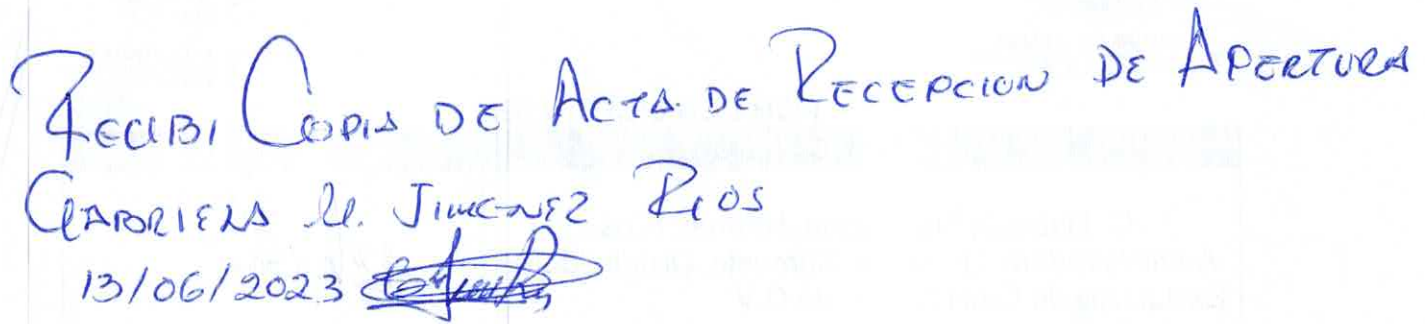 RECIBI COPIA DE ACTA DE RECEPCION DE APERTURA
GABRIELA M. JIMENEZ RIOS
13/06/2023